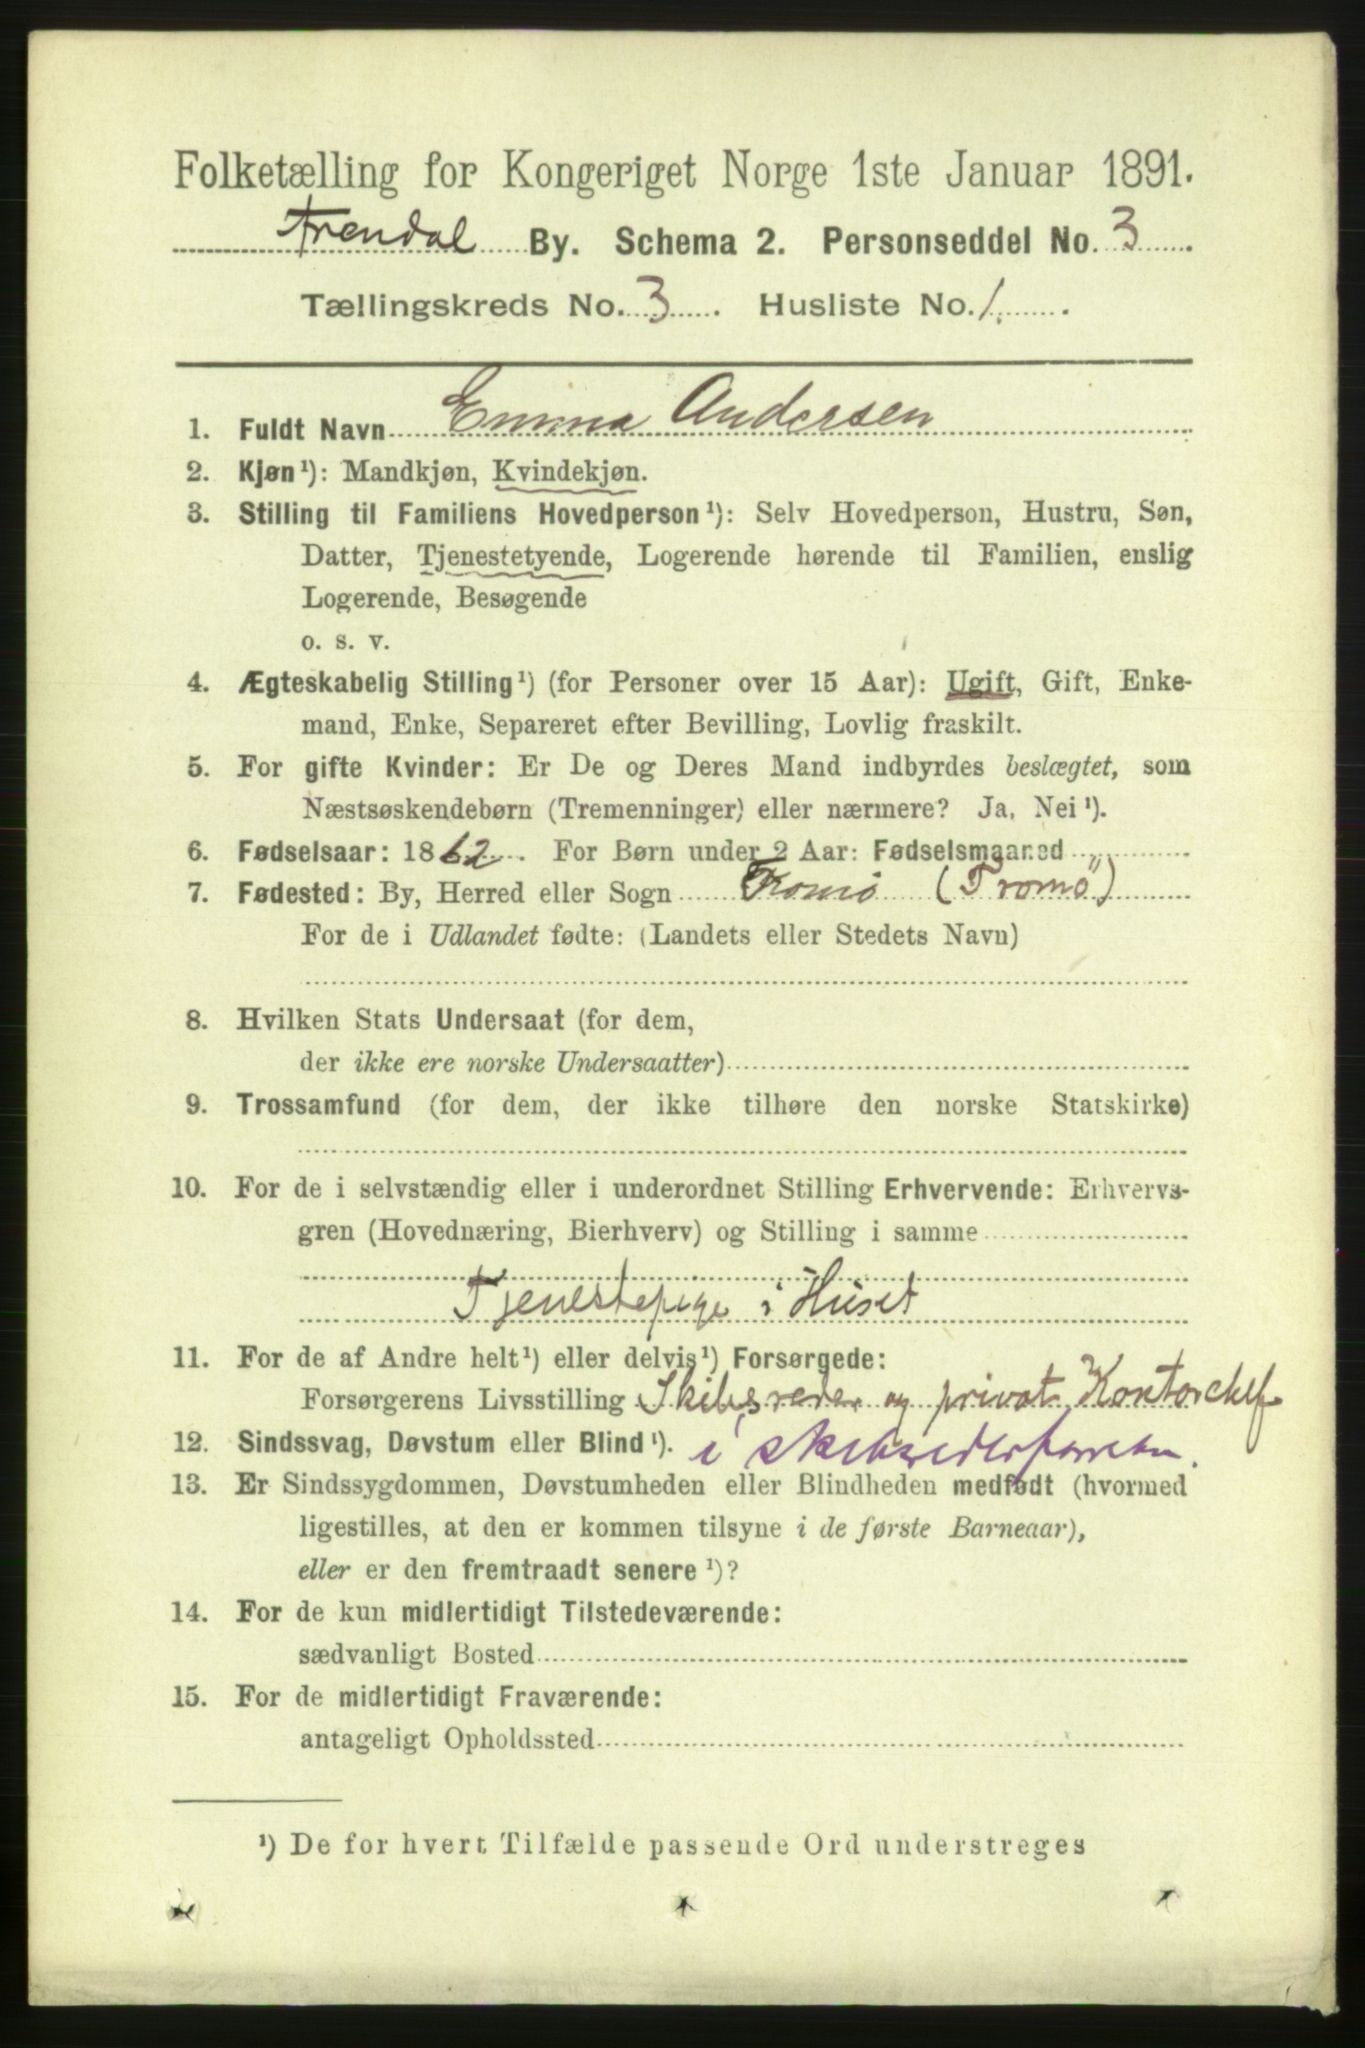 Folketælling for Kongeriget Norge 1ste Januar 1891.
Arendal By. Schema 2. Personseddel No. 3
Tællingskreds No. 3. Husliste No. 1.
1. Fuldt Navn Emma Andersen
2. Kjøn¹): Mandkjøn, Kvindekjøn.
3. Stilling til Familiens Hovedperson¹): Selv Hovedperson, Hustru, Søn,
Datter, Tjenestetyende, Logerende hørende til Familien, enslig
Logerende, Besøgende
o. s. v.
4. Ægteskabelig Stilling¹) (for Personer over 15 Aar): Ugift, Gift, Enke-
mand, Enke, Separeret efter Bevilling, Lovlig fraskilt.
5. For gifte Kvinder: Er De og Deres Mand indbyrdes beslægtet, som
Næstsøskendebørn (Tremenninger) eller nærmere? Ja, Nei¹).
6. Fødselsaar: 1862. For Børn under 2 Aar: Fødselsmaaned
7. Fødested: By, Herred eller Sogn Tromø (Tromö)
For de i Udlandet fødte: (Landets eller Stedets Navn)
8. Hvilken Stats Undersaat (for dem,
der ikke ere norske Undersaatter)
9. Trossamfund (for dem, der ikke tilhøre den norske Statskirke)
10. For de i selvstændig eller i underordnet Stilling Erhvervende: Erhvervs-
gren (Hovednæring, Bierhverv) og Stilling i samme
Tjenestepige i Huset
11. For de af Andre helt¹) eller delvis¹) Forsørgede:
Forsørgerens Livsstilling Skibsreder og privat Kontorchef
12. Sindssvag, Døvstum eller Blind¹). i
13. Er Sindssygdommen, Døvstumheden eller Blindheden medfødt (hvormed
ligestilles, at den er kommen tilsyne i de første Barneaar),
eller er den fremtraadt senere¹)?
14. For de kun midlertidigt Tilstedeværende:
sædvanligt Bosted
15. For de midlertidigt Fraværende:
antageligt Opholdssted
¹) De for hvert Tilfælde passende Ord understreges